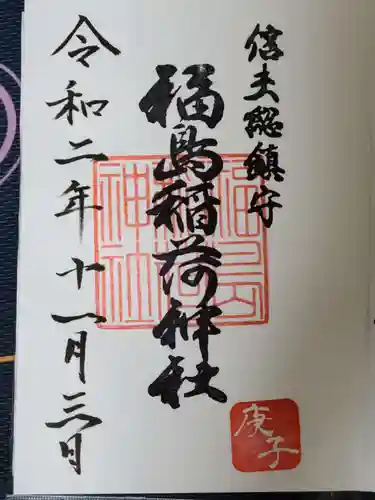 信夫総鎮守
福島稲荷神社
令和二年十一月三日
庚子